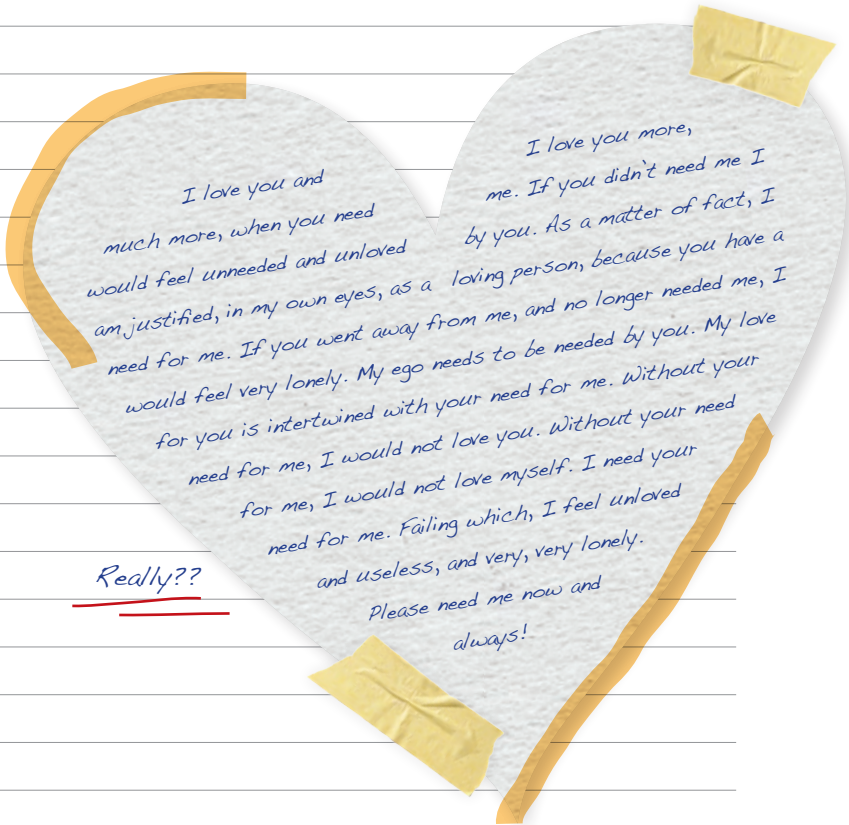 I love you and I love you more,
much more, when you need me. If you didn't need me I
would feel unneeded and unloved by you. As a matter of fact, I
am justified, in my own eyes, as a loving person, because you have a
need for me. If you went away from me, and no longer needed me, I
would feel very lonely. My ego needs to be needed by you. My love
for you is intertwined with your need for me. Without your
need for me, I would not love you. Without your need
for me, I would not love myself. I need your
need for me. Failing which, I feel unloved
and useless, and very, very lonely.
Please need me now and
always!
Really??